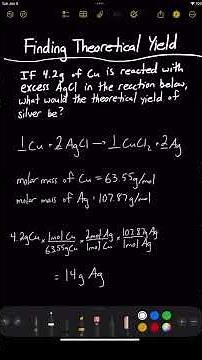 Finding Theoretical Yield
If 4.2g of Cu is reacted with
excess AgCl in the reaction below,
what would the theoretical yield of
silver be?
1Cu + 2AgCl → 1CuCl₂ + 2Ag
molar mass of Cu = 63.55g/mol
molar mass of Ag = 107.87g/mol
4.2gCu × 1mol Cu/63.55gCu × 2mol Ag/1mol Cu × 107.87g Ag/1mol Ag
= 14g Ag